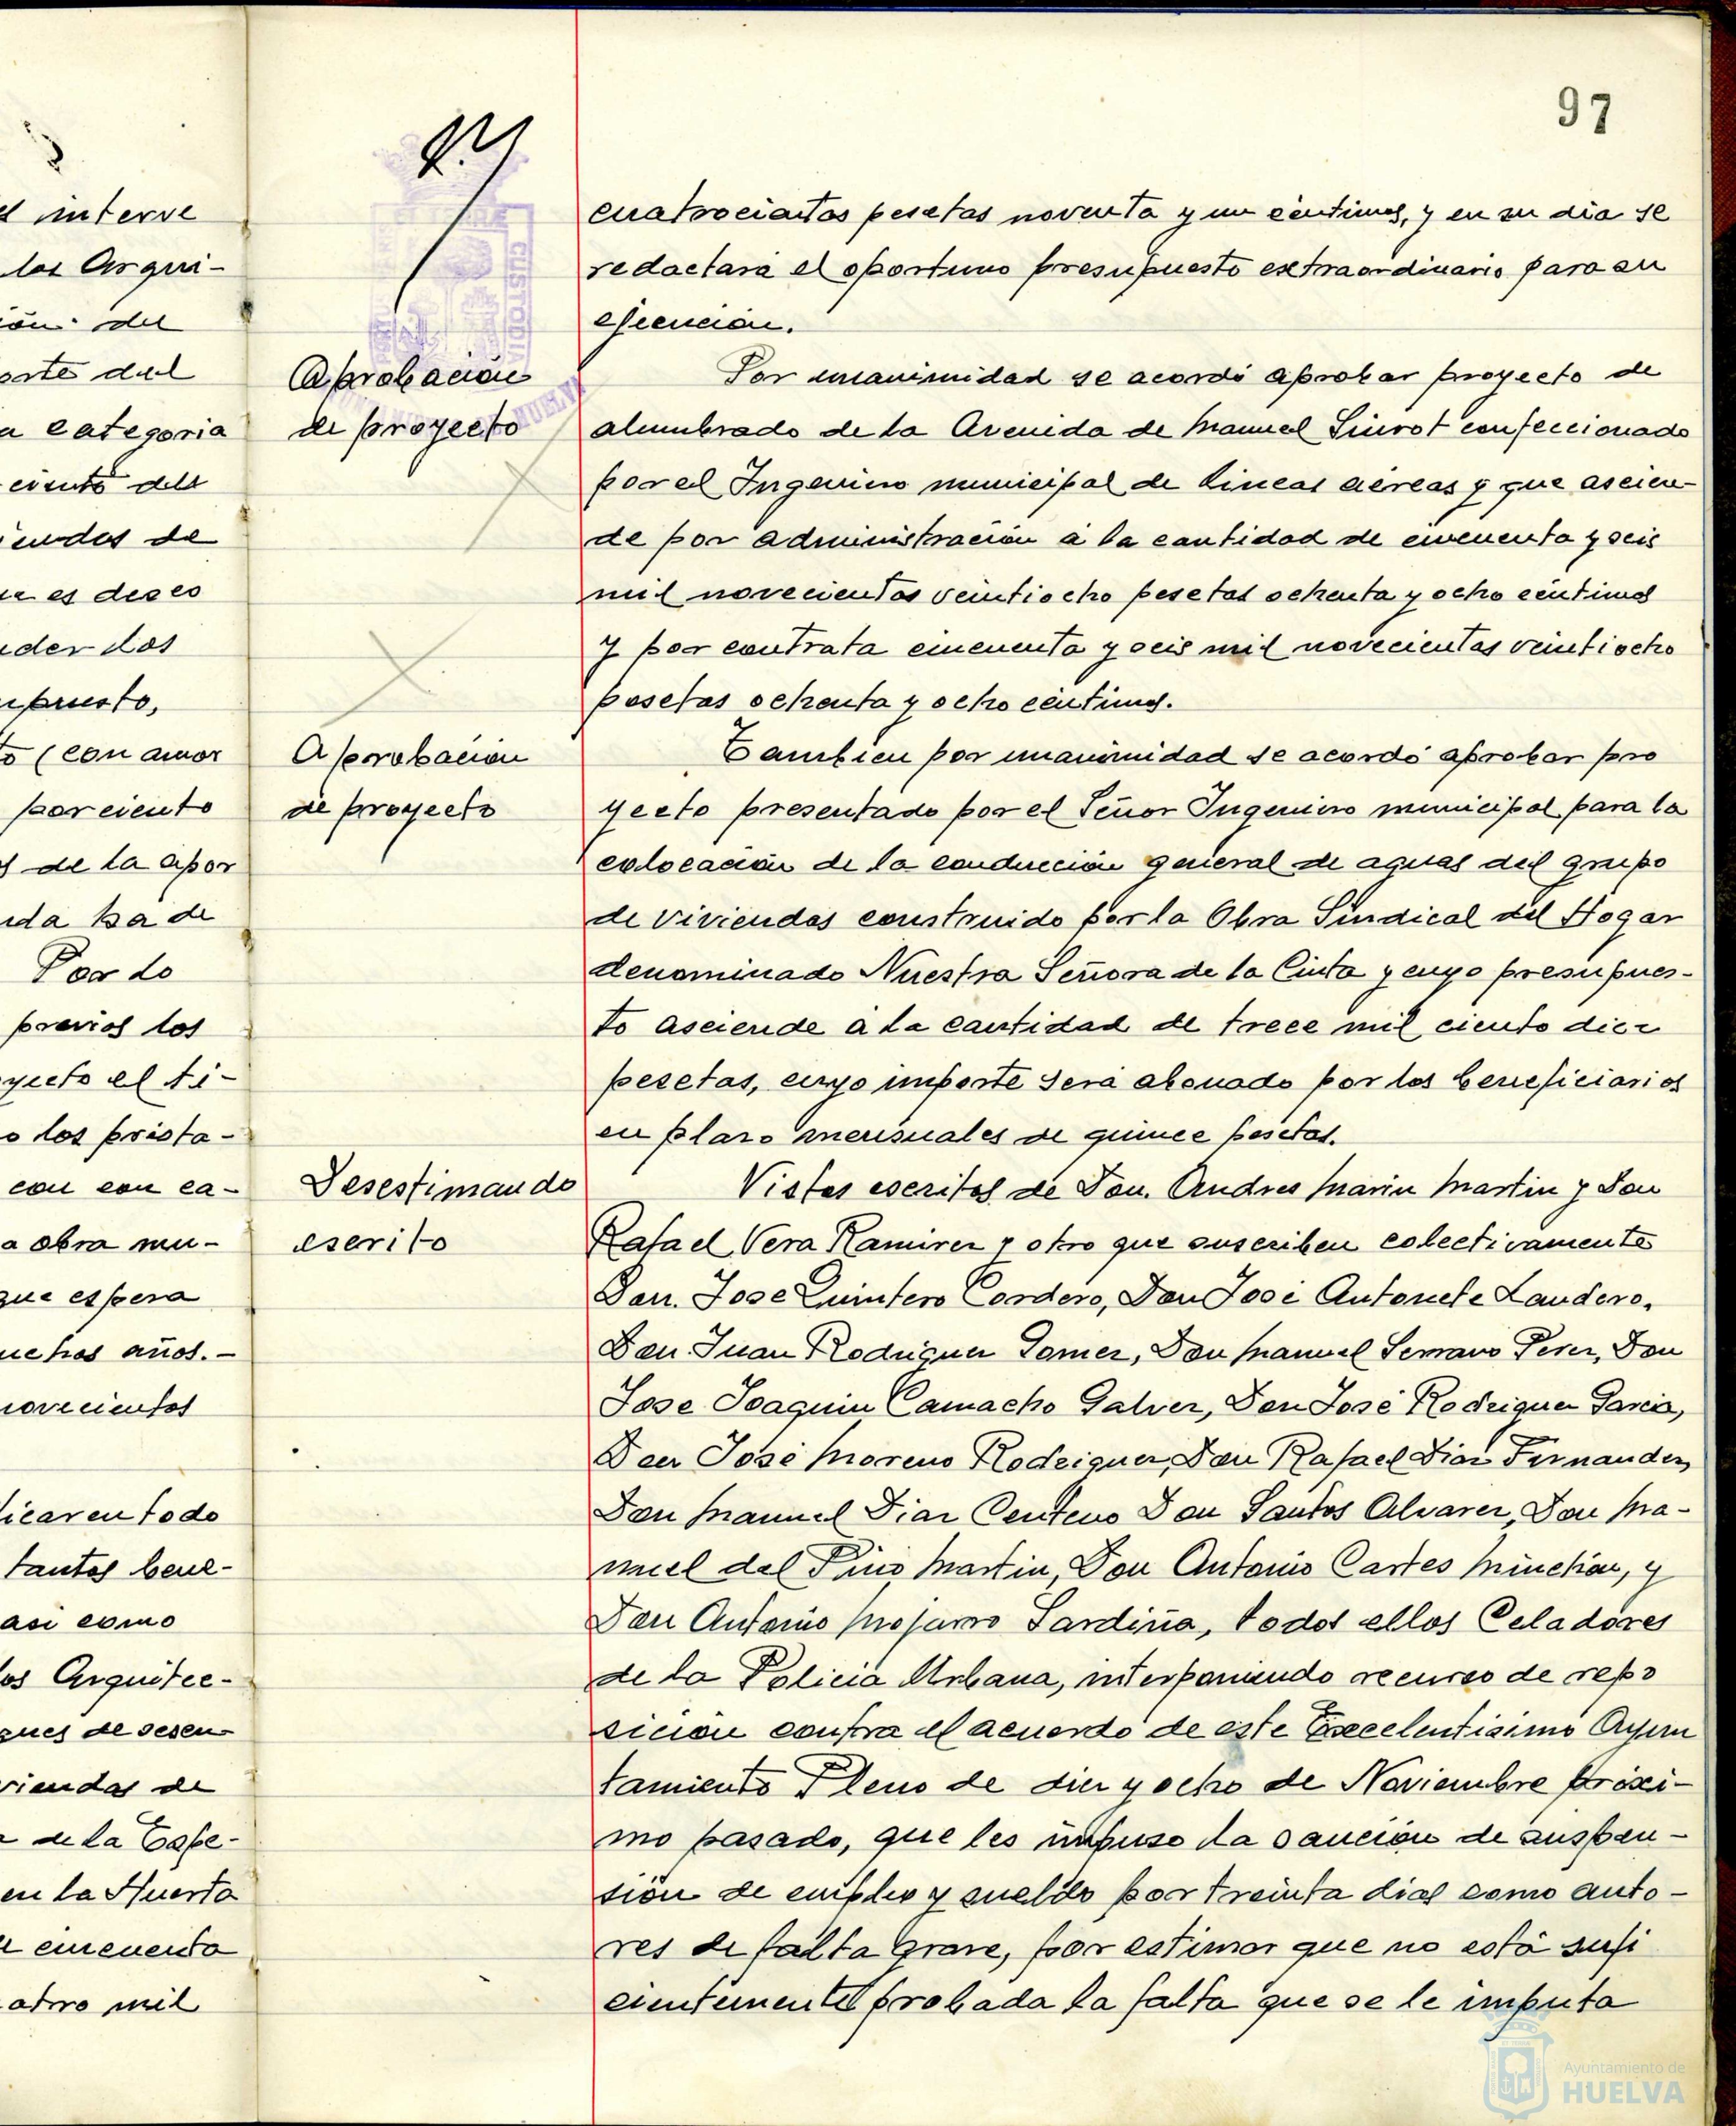 97
s interve
los Arqui-
ión del
orte del
a categoria
ciento del
iendas de
ue es deseo
der los
upuesto,
to (con amor
por ciento
s de la apor
ida ha de
Por lo
previos los
yecto el ti-
o los presta-
con con ca-
a obra mu-
que espera
uchos años.-
novecientos
licar en todo
tantos bene-
asi como
os Arquitec-
ques de sesen
viendas de
de la Espe-
en la Huerta
cincuenta
atro mil
cuatrocientas pesetas noventa y un céntimos, y en su dia se
redactará el oportuno presupuesto extraordinario para su
ejecución.
Aprobación
de proyecto
Por unanimidad se acordó aprobar proyecto de
alumbrado de la Avenida de Manuel Siurot confeccionado
por el Ingeniero municipal de lineas aéreas y que ascien-
de por administración a la cantidad de cincuenta y seis
mil novecientas veintiocho pesetas ochenta y ocho céntimos
y por contrata cincuenta y seis mil novecientas veintiocho
pesetas ochenta y ocho céntimos.
Aprobación
de proyecto
Tambien por unanimidad se acordó aprobar pro
yecto presentado por el Señor Ingeniero municipal para la
colocación de la conducción general de aguas del grupo
de viviendas construido por la Obra Sindical del Hogar
denominado Nuestra Señora de la Cinta y cuyo presupues-
to asciende a la cantidad de trece mil ciento diez
pesetas, cuyo importe será abonado por los beneficiarios
en plazo mensuales de quince pesetas.
Desestimando
escrito
Vistos escritos de Don. Andres Marin Martin y Don
Rafael Vera Ramirez y otro que suscriben colectivamente
Don. Jose Quintero Cordero, Don José Antonete Landero,
Don Juan Rodriguez Gomez, Don Manuel Serrano Perez, Don
Jose Joaquin Camacho Galvez, Don José Rodriguez Garcia,
Don José Moreno Rodriguez, Don Rafael Diaz Fernandez,
Don Manuel Diaz Centeno Don Santos Alvarez, Don Ma-
nuel del Pino Martin, Don Antonio Cartes Minchón, y
Don Antonio Mojarro Sardiña, todos ellos Celadores
de la Policia Urbana, interponiendo recurso de repo
sición contra el acuerdo de este Excelentisimo Ayun
tamiento Pleno de diez y ocho de Noviembre próxi-
mo pasado, que les impuso la sanción de suspen-
sión de empleo y sueldo por treinta dias como auto-
res de falta grave, por estimar que no está sufi
cientemente probada la falta que se le imputa
Ayuntamiento de
HUELVA